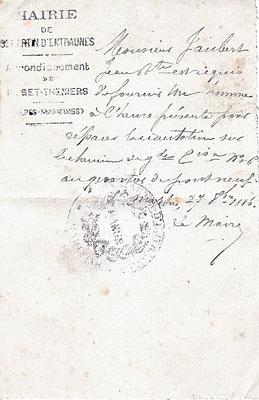 MAIRIE
DE
ST MARTIN D'ENTRAUNES
Arrondissement
DE
PUGET-THENIERS
(ALPES-MARITIMES)
Monsieur Jaubert
Jean Bte est requis
de fournir un homme
à l'heure présente pour
réparer la circulation sur
le chemin de gde Cion No
au quartier du pont neuf
St Martin, 27 8bre 1886.
Le Maire